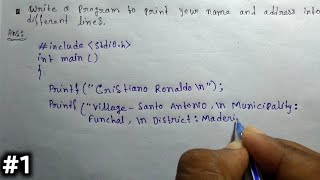 Write a program to print your name and address into
different lines.
Ans:
#include <stdio.h>
int main ()
{
Printf ("Cristiano Ronaldo \n");
Printf ("Village - Santo Antonio, \n Municipality:
Funchal, \n District: Maderi
#1